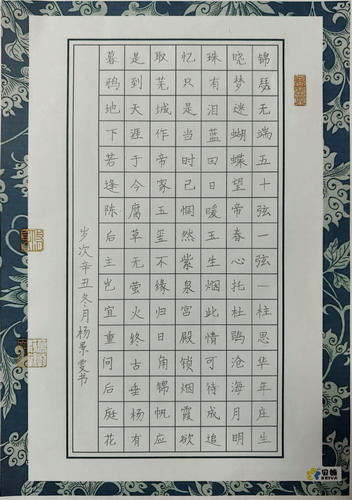 锦瑟无端五十弦一弦一柱思华年庄生
晓梦迷蝴蝶望帝春心托杜鹃沧海月明
珠有泪蓝田日暖玉生烟此情可待成追
忆只是当时已惘然紫泉宫殿锁烟霞欲
取芜城作帝家玉玺不缘归日角锦帆应
是到天涯于今腐草无萤火终古垂杨有
暮鸦地下若逢陈后主岂宜重问后庭花
岁次辛丑冬月杨景雯书